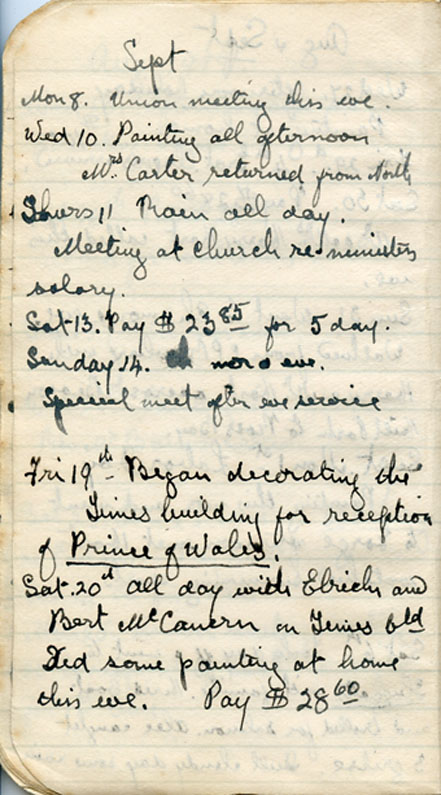 Sept
Mon 8. Union meeting this eve.
Wed 10. Painting all afternoon
Mrs Carter returned from North
Thurs 11 Rain all day.
Meeting at church re-ministers
salary.
Sat 13. Pay $ 23 85 for 5 day.
Sunday 14. ch mor & eve.
Special meet after eve service
Fri 19th - Began decorating the
Times building for reception
of Prince of Wales.
Sat. 20th all day with and
Bert McCanern on Times bld
Did some painting at home
this eve. Pay $ 28 60